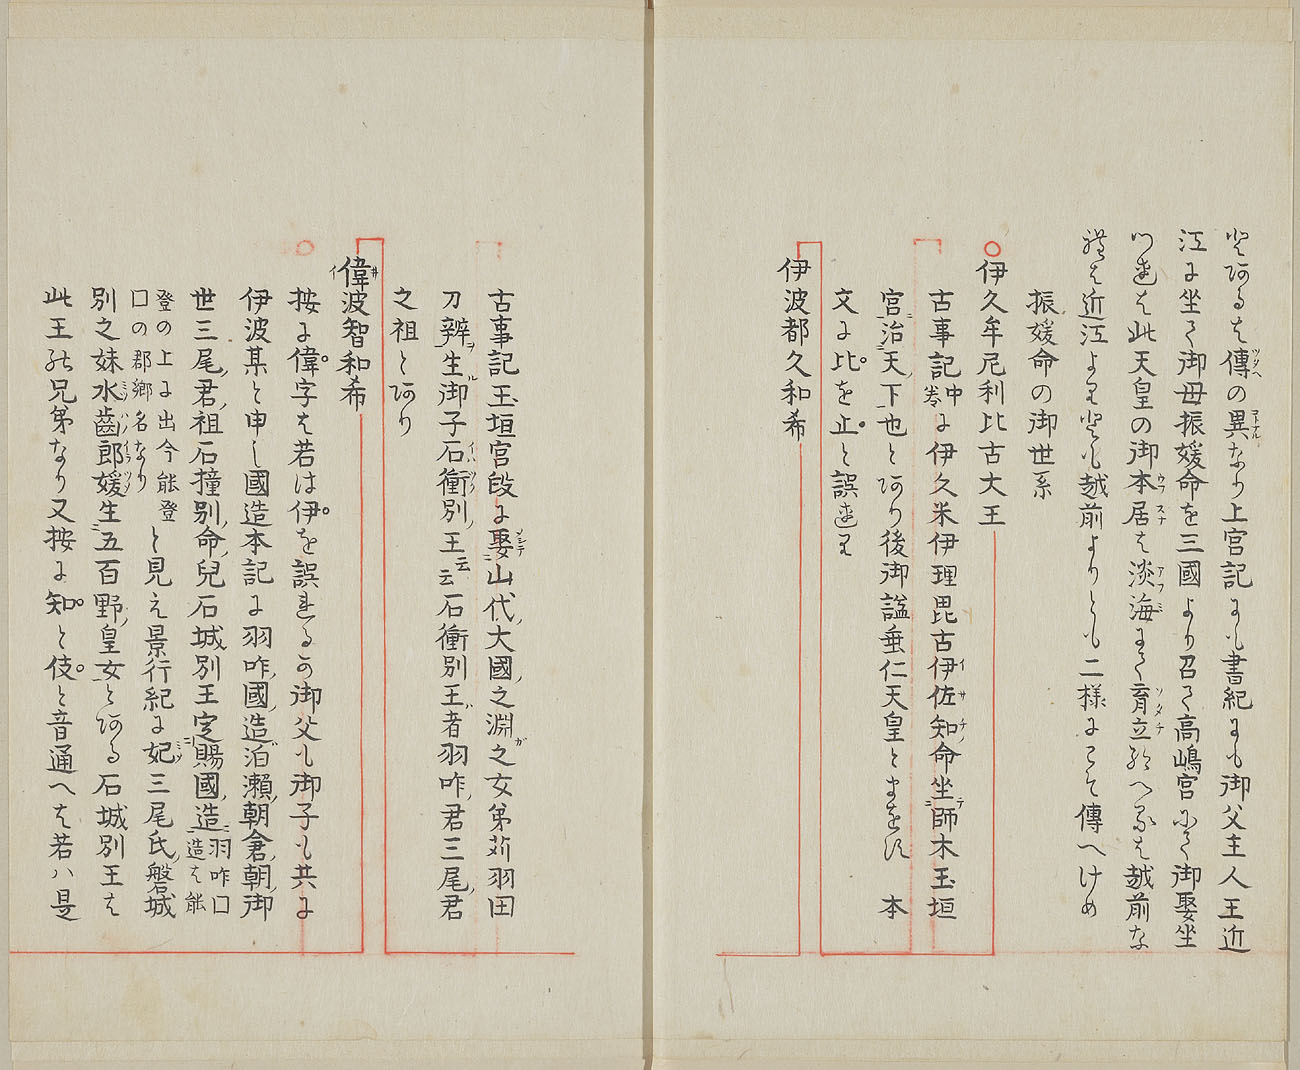 とあるは傳の異なり上宮記にも書紀にも御父主人王近
江に坐て御母振媛命を三國より召て高嶋宮にて御娶坐
つれは此天皇の御本居は淡海にて育立給へるは越前な
れは近江よりとも越前よりとも二様にこそ傳へけめ
振媛命の御世系
伊久牟尼利比古大王
古事記中卷に伊久米伊理毘古伊佐知命坐師木玉垣
宮治天下也とあり後御諡垂仁天皇とまをす 本
文に比を止と誤れり
伊波都久和希
古事記玉垣宮段に娶山代大國之淵之女弟苅羽田
刀辨生御子石衝別王云云石衝別王者羽咋君三尾君
之祖とあり
偉波智和希
按に偉字は若は伊を誤れるか御父も御子も共に
伊波某と申し國造本記に羽咋國造泊瀬朝倉朝御
世三尾君祖石撞別命兒石城別王定賜國造羽咋口造は能
登の上に出今能登口の郡鄉名なりと見え景行紀に妃三尾氏磐城
別之妹水齒郎媛生五百野皇女とある石城別王は
此王の兄弟なり又按に知と伎と音通へは若ハ是